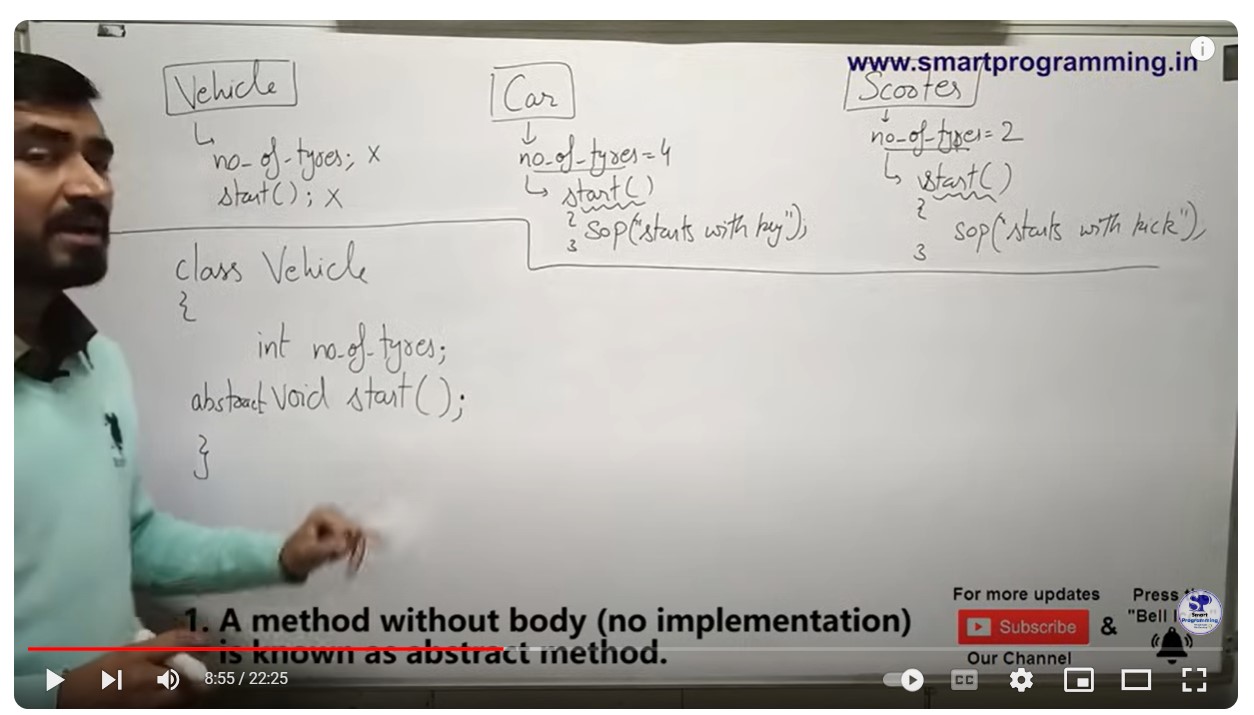 www.smartprogramming.in
Vehicle
no_of_tyres; x
start(); x
Car
no_of_tyres=4
start()
{
SOP("starts with key");
}
Scooter
no_of_tyres=2
start()
{
SOP("starts with kick");
}
class Vehicle
{
int no_of_tyres;
abstract void start();
}
1. A method without body (no implementation)
is known as abstract method.
For more updates
Subscribe
Our Channel
&
Press
"Bell
SP
Smart
Programming
8:55 / 22:25
CC